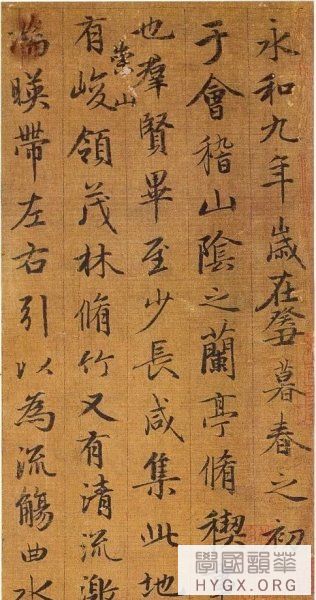 永和九年歲在癸丑暮春之初
于會稽山陰之蘭亭脩稧事
也羣賢畢至少長咸集此地
有崇山峻領茂林脩竹又有清流激
湍暎帶左右引以為流觴曲水
學國韻華
HYGX.ORG